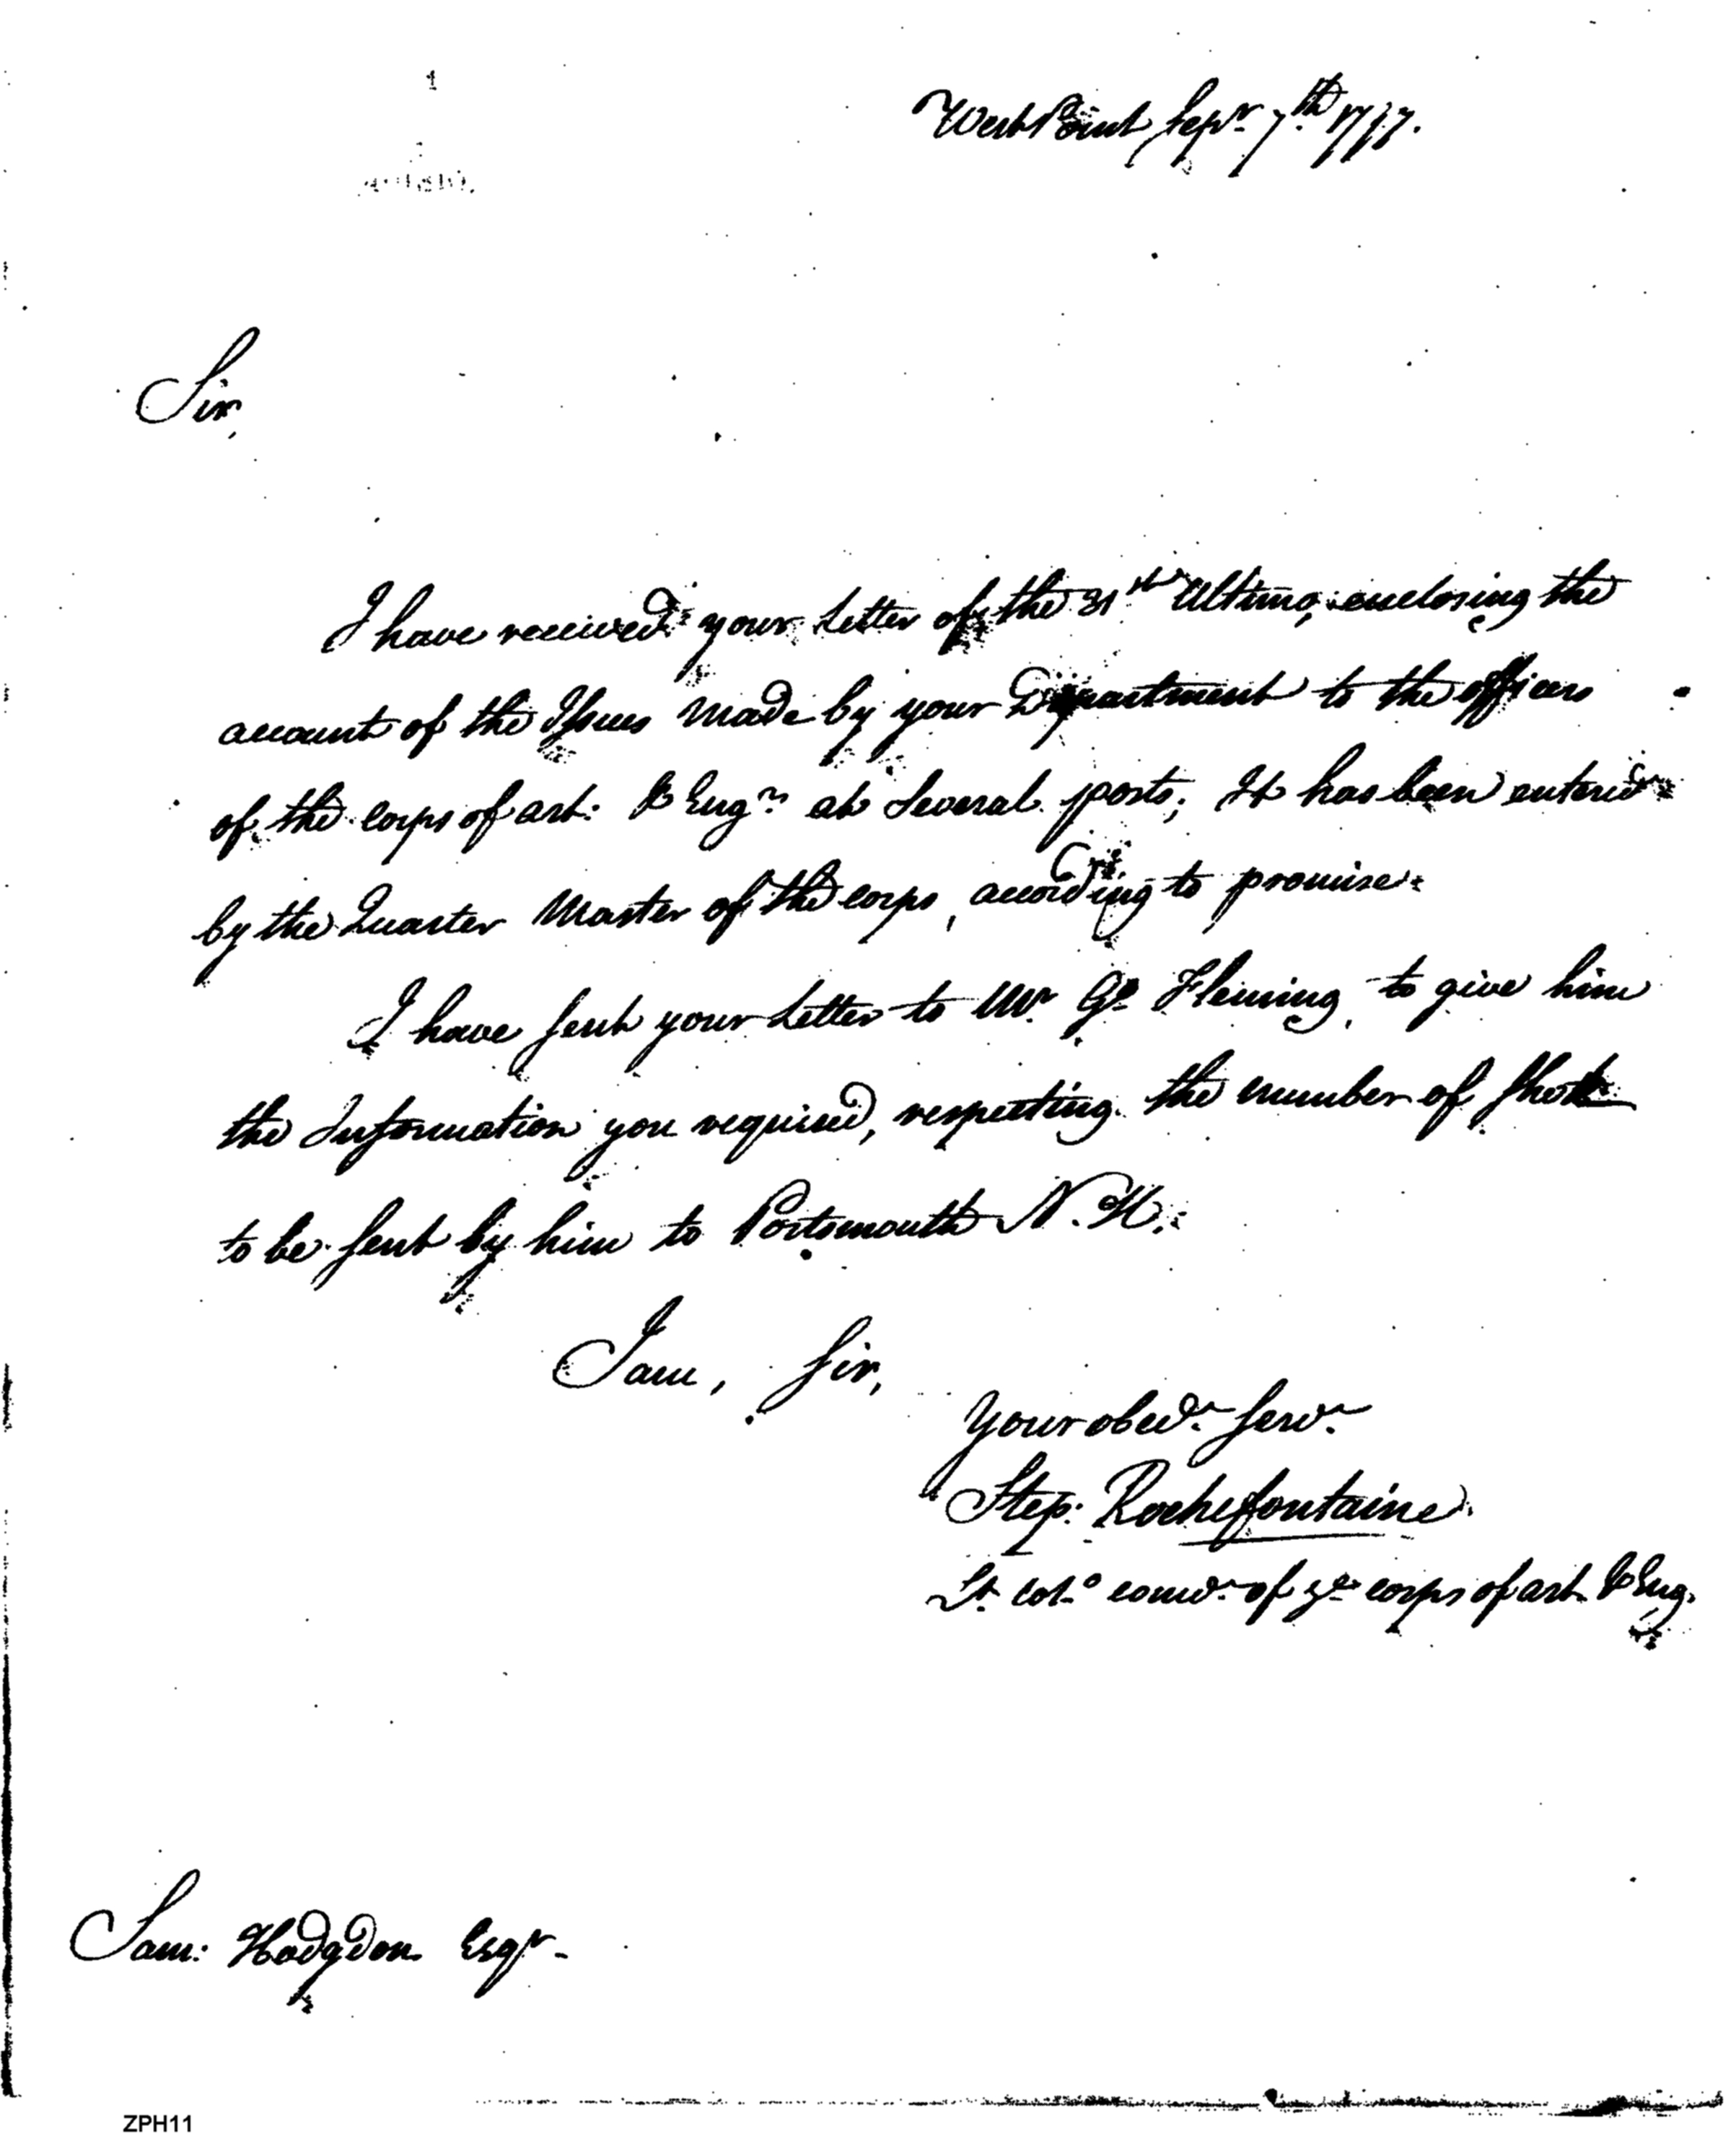 West Point Sepr. 7th. 1797.
Sir,
I have received your Letter of the 31st Ultimo, enclosing the
account of the Issues made by your Department to the officers
of the corps of art: & Engrs. at Several posts; It has been entered
by the Quarter Master of the corps, according to promise.
I have sent your Letter to Mr. Ge. Fleming, to give him
the Information you required, respecting the number of shot
to be sent by him to Portsmouth N. H.
I am, Sir,
Your obedt. servt.
Step: Rochefontaine
Lt. Colo. comdt. of ye corps of art. & Eng.
Sam: Hodgdon Esqr.
ZPH11